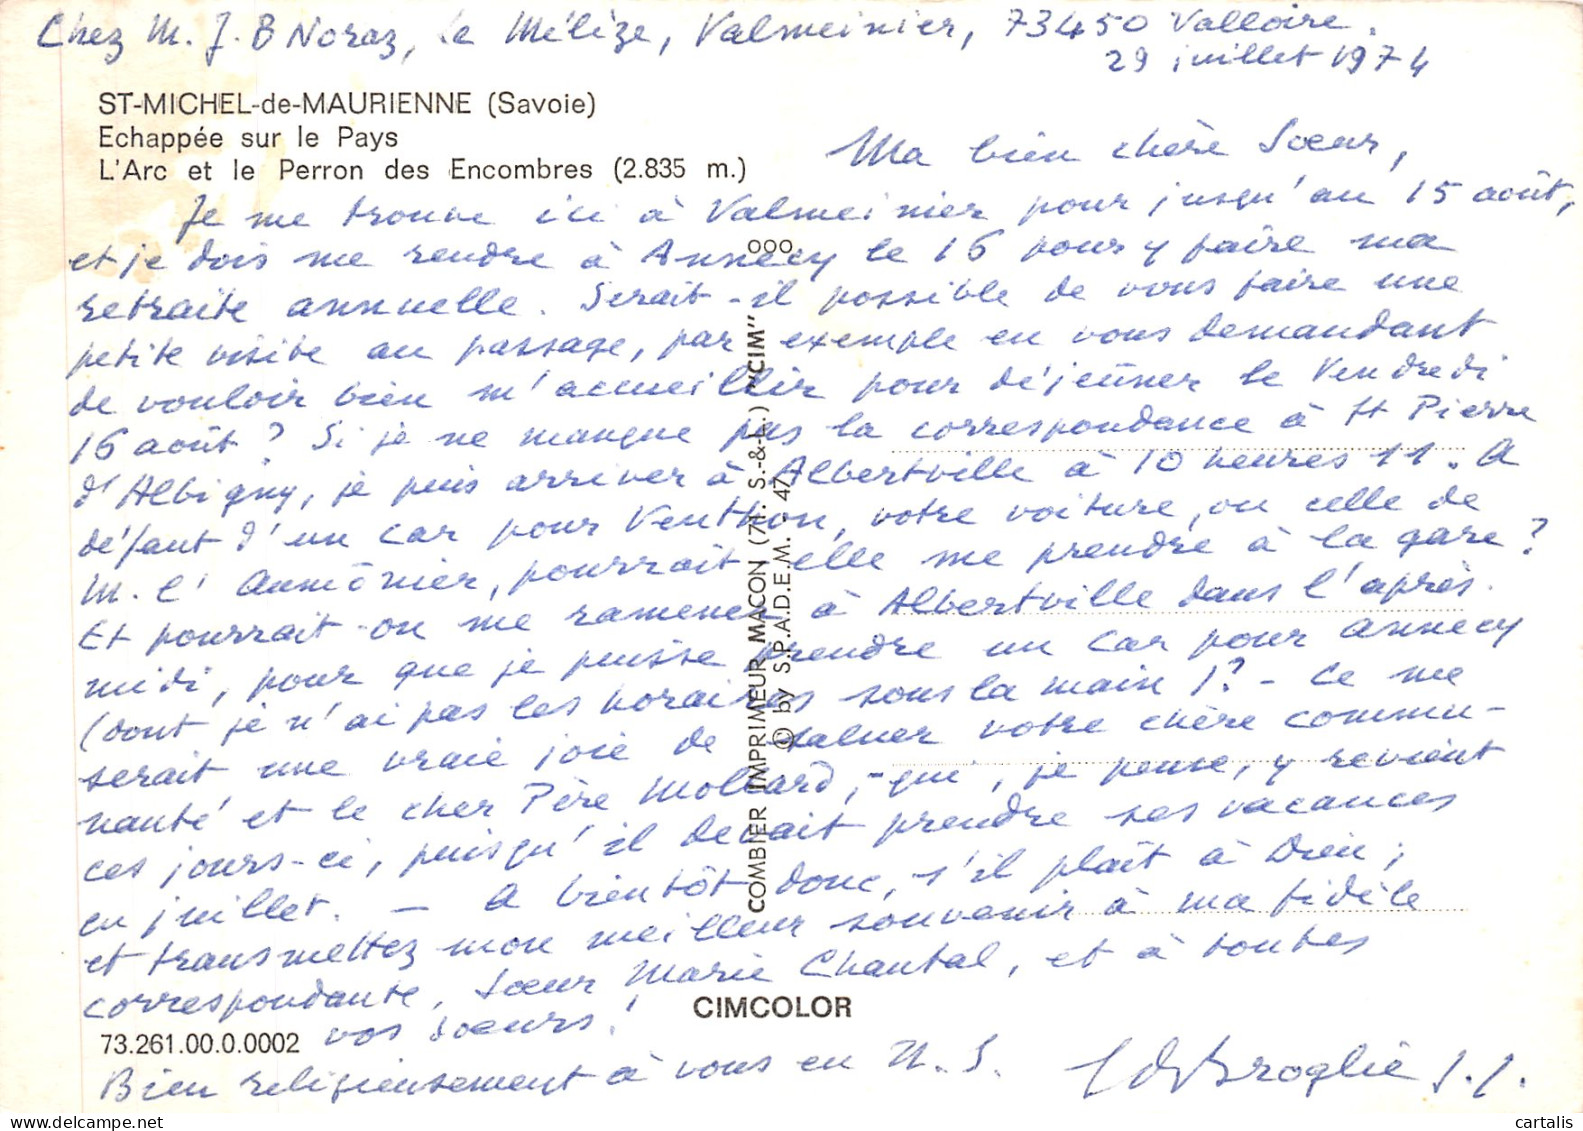 Chez M. J. B Noraz, le Mélèze, Valmeinier, 73450 Valloire.
29 juillet 1974
ST-MICHEL-de-MAURIENNE (Savoie)
Echappée sur le Pays
L'Arc et le Perron des Encombres (2.835 m.)
Ma bien chère Sœur,
Je me trouve ici à Valmeinier pour jusqu'au 15 août,
et je dois me rendre à Annecy le 16 pour y faire ma
retraite annuelle. Serait-il possible de vous faire une
petite visite au passage, par exemple en vous demandant
de vouloir bien m'accueillir pour déjeûner le Vendredi
16 août ? Si je ne manque pas la correspondance à St Pierre
d'Albigny, je puis arriver à Albertville à 10 heures 11. A
défaut d'un car pour Venthon, votre voiture, ou celle de
M. l'Aumônier, pourrait-elle me prendre à la gare ?
Et pourrait-on me ramener à Albertville dans l'après-
midi, pour que je puisse prendre un car pour Annecy
(dont je n'ai pas les horaires sous la main) ? - Ce me
serait une vraie joie de saluer votre chère commu-
nauté et le cher Père Mollard, - qui, je pense, y revient
ces jours-ci, puisqu'il devait prendre ses vacances
en juillet. - A bientôt donc, s'il plaît à Dieu ;
et transmettez mon meilleur souvenir à ma fidèle
correspondante, Sœur Marie Chantal, et à toutes
vos sœurs !
Bien religieusement à vous en N. S.
de Broglie s.j.
OOO
COMBIER IMPRIMEUR MACON (71. S.-&-L.) "CIM"
© by S.P.A.D.E.M. 47
CIMCOLOR
73.261.00.0.0002
delcampe.net
cartalis